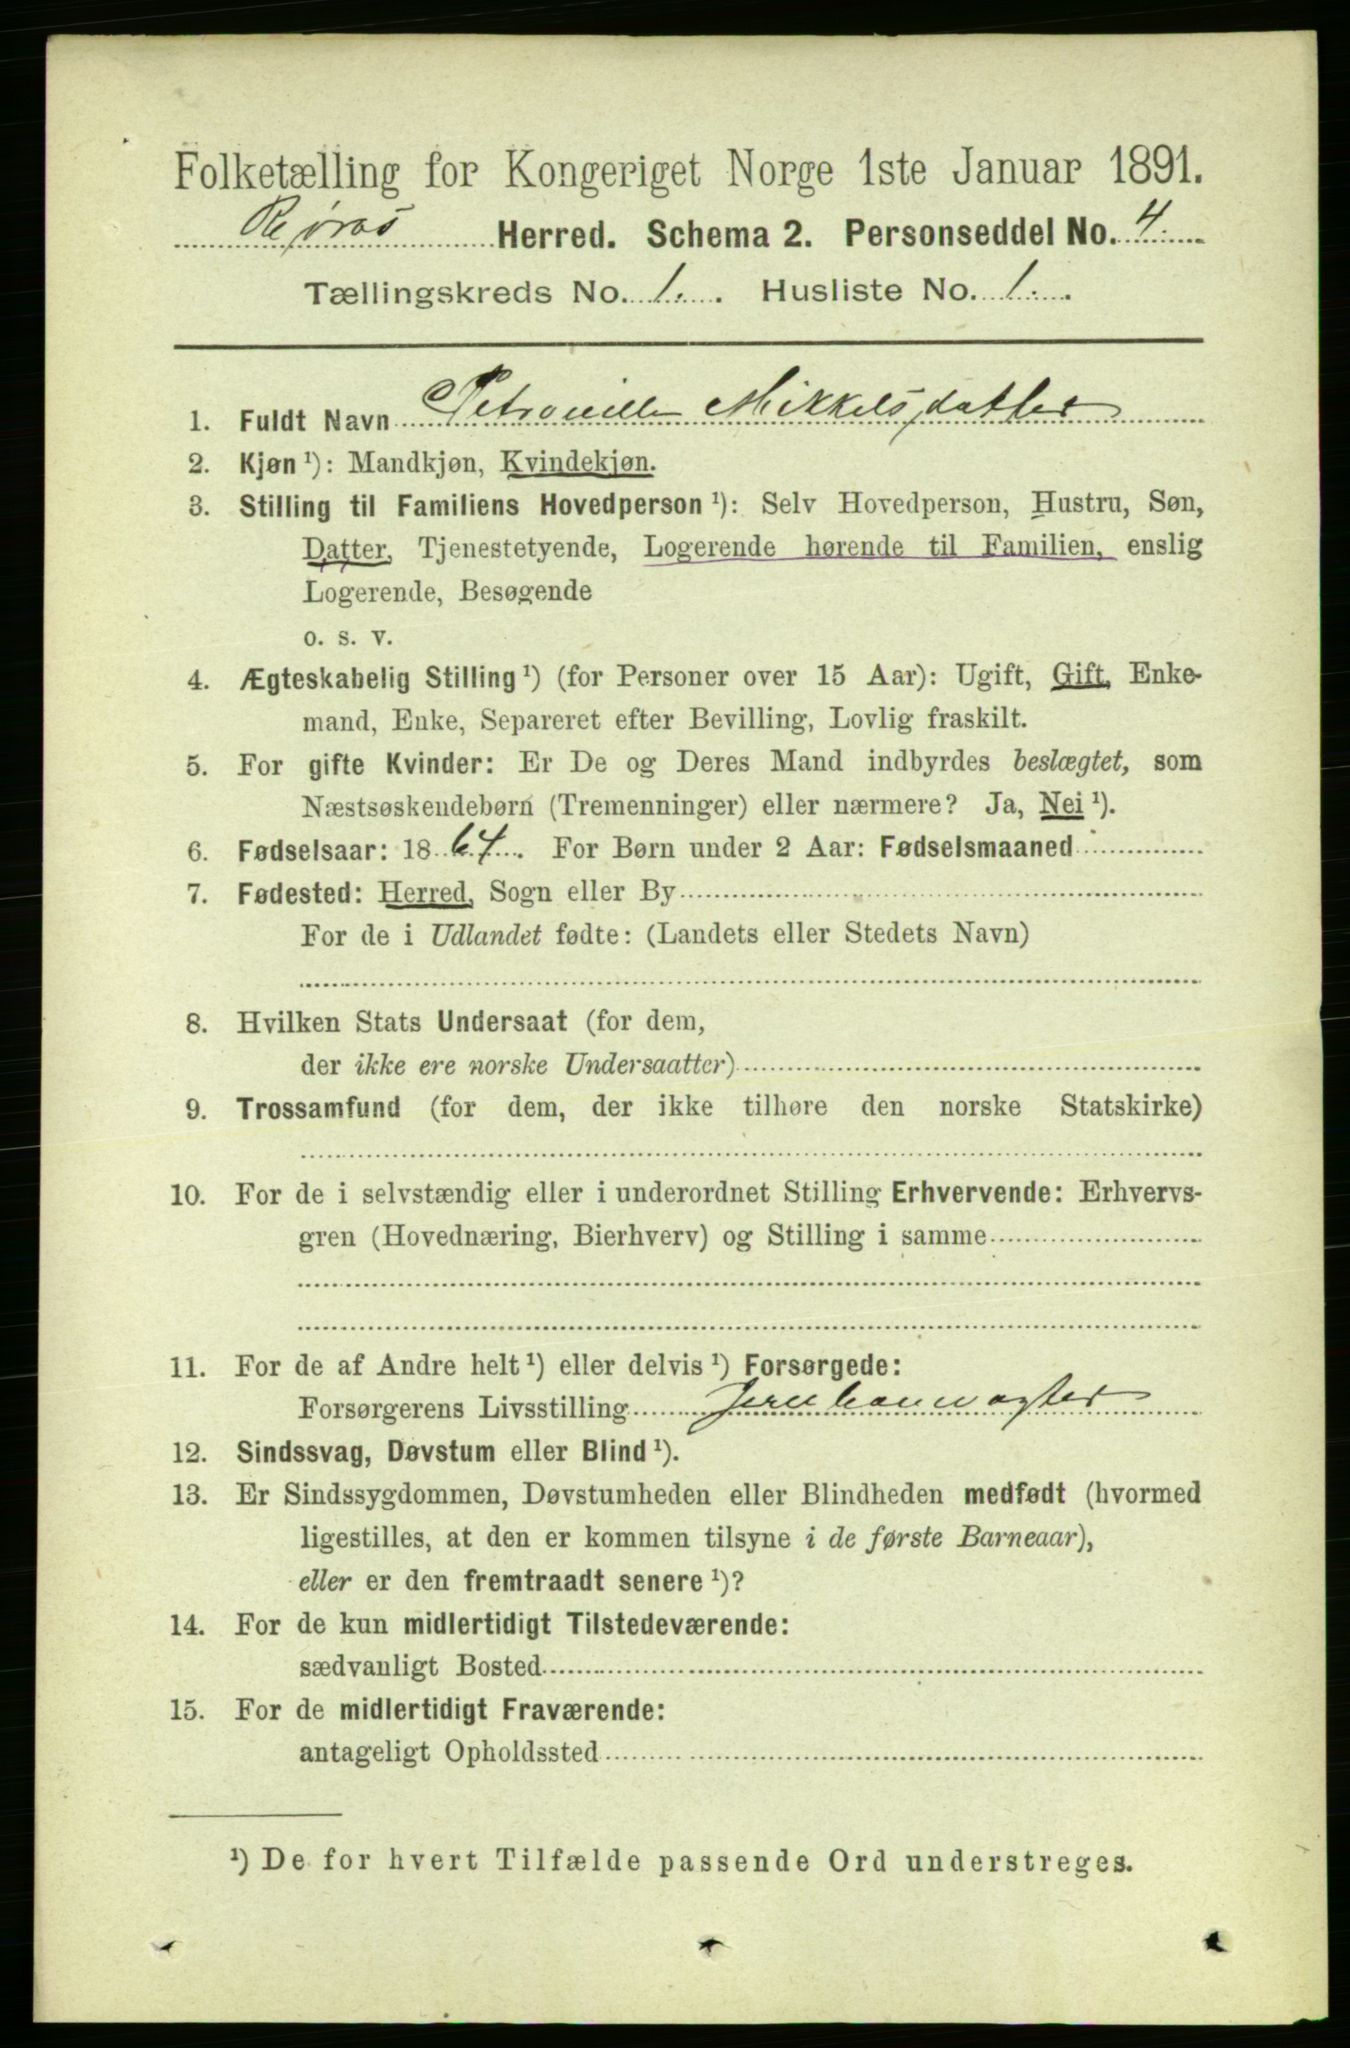 Folketælling for Kongeriget Norge 1ste Januar 1891.
Røros Herred. Schema 2. Personseddel No. 4.
Tællingskreds No. 1. Husliste No. 1.
1. Fuldt Navn Petronille Mikkelsdatter
2. Kjøn ¹): Mandkjøn, Kvindekjøn.
3. Stilling til Familiens Hovedperson ¹): Selv Hovedperson, Hustru, Søn,
Datter, Tjenestetyende, Logerende hørende til Familien, enslig
Logerende, Besøgende
o. s. v.
4. Ægteskabelig Stilling ¹) (for Personer over 15 Aar): Ugift, Gift, Enke-
mand, Enke, Separeret efter Bevilling, Lovlig fraskilt.
5. For gifte Kvinder: Er De og Deres Mand indbyrdes beslægtet, som
Næstsøskendebørn (Tremenninger) eller nærmere? Ja, Nei ¹).
6. Fødselsaar: 1864. For Børn under 2 Aar: Fødselsmaaned
7. Fødested: Herred, Sogn eller By
For de i Udlandet fødte: (Landets eller Stedets Navn)
8. Hvilken Stats Undersaat (for dem,
der ikke ere norske Undersaatter)
9. Trossamfund (for dem, der ikke tilhøre den norske Statskirke)
10. For de i selvstændig eller i underordnet Stilling Erhvervende: Erhvervs-
gren (Hovednæring, Bierhverv) og Stilling i samme
11. For de af Andre helt ¹) eller delvis ¹) Forsørgede:
Forsørgerens Livsstilling Jernbanevogter
12. Sindssvag, Døvstum eller Blind ¹).
13. Er Sindssygdommen, Døvstumheden eller Blindheden medfødt (hvormed
ligestilles, at den er kommen tilsyne i de første Barneaar),
eller er den fremtraadt senere ¹)?
14. For de kun midlertidigt Tilstedeværende:
sædvanligt Bosted
15. For de midlertidigt Fraværende:
antageligt Opholdssted
¹) De for hvert Tilfælde passende Ord understreges.